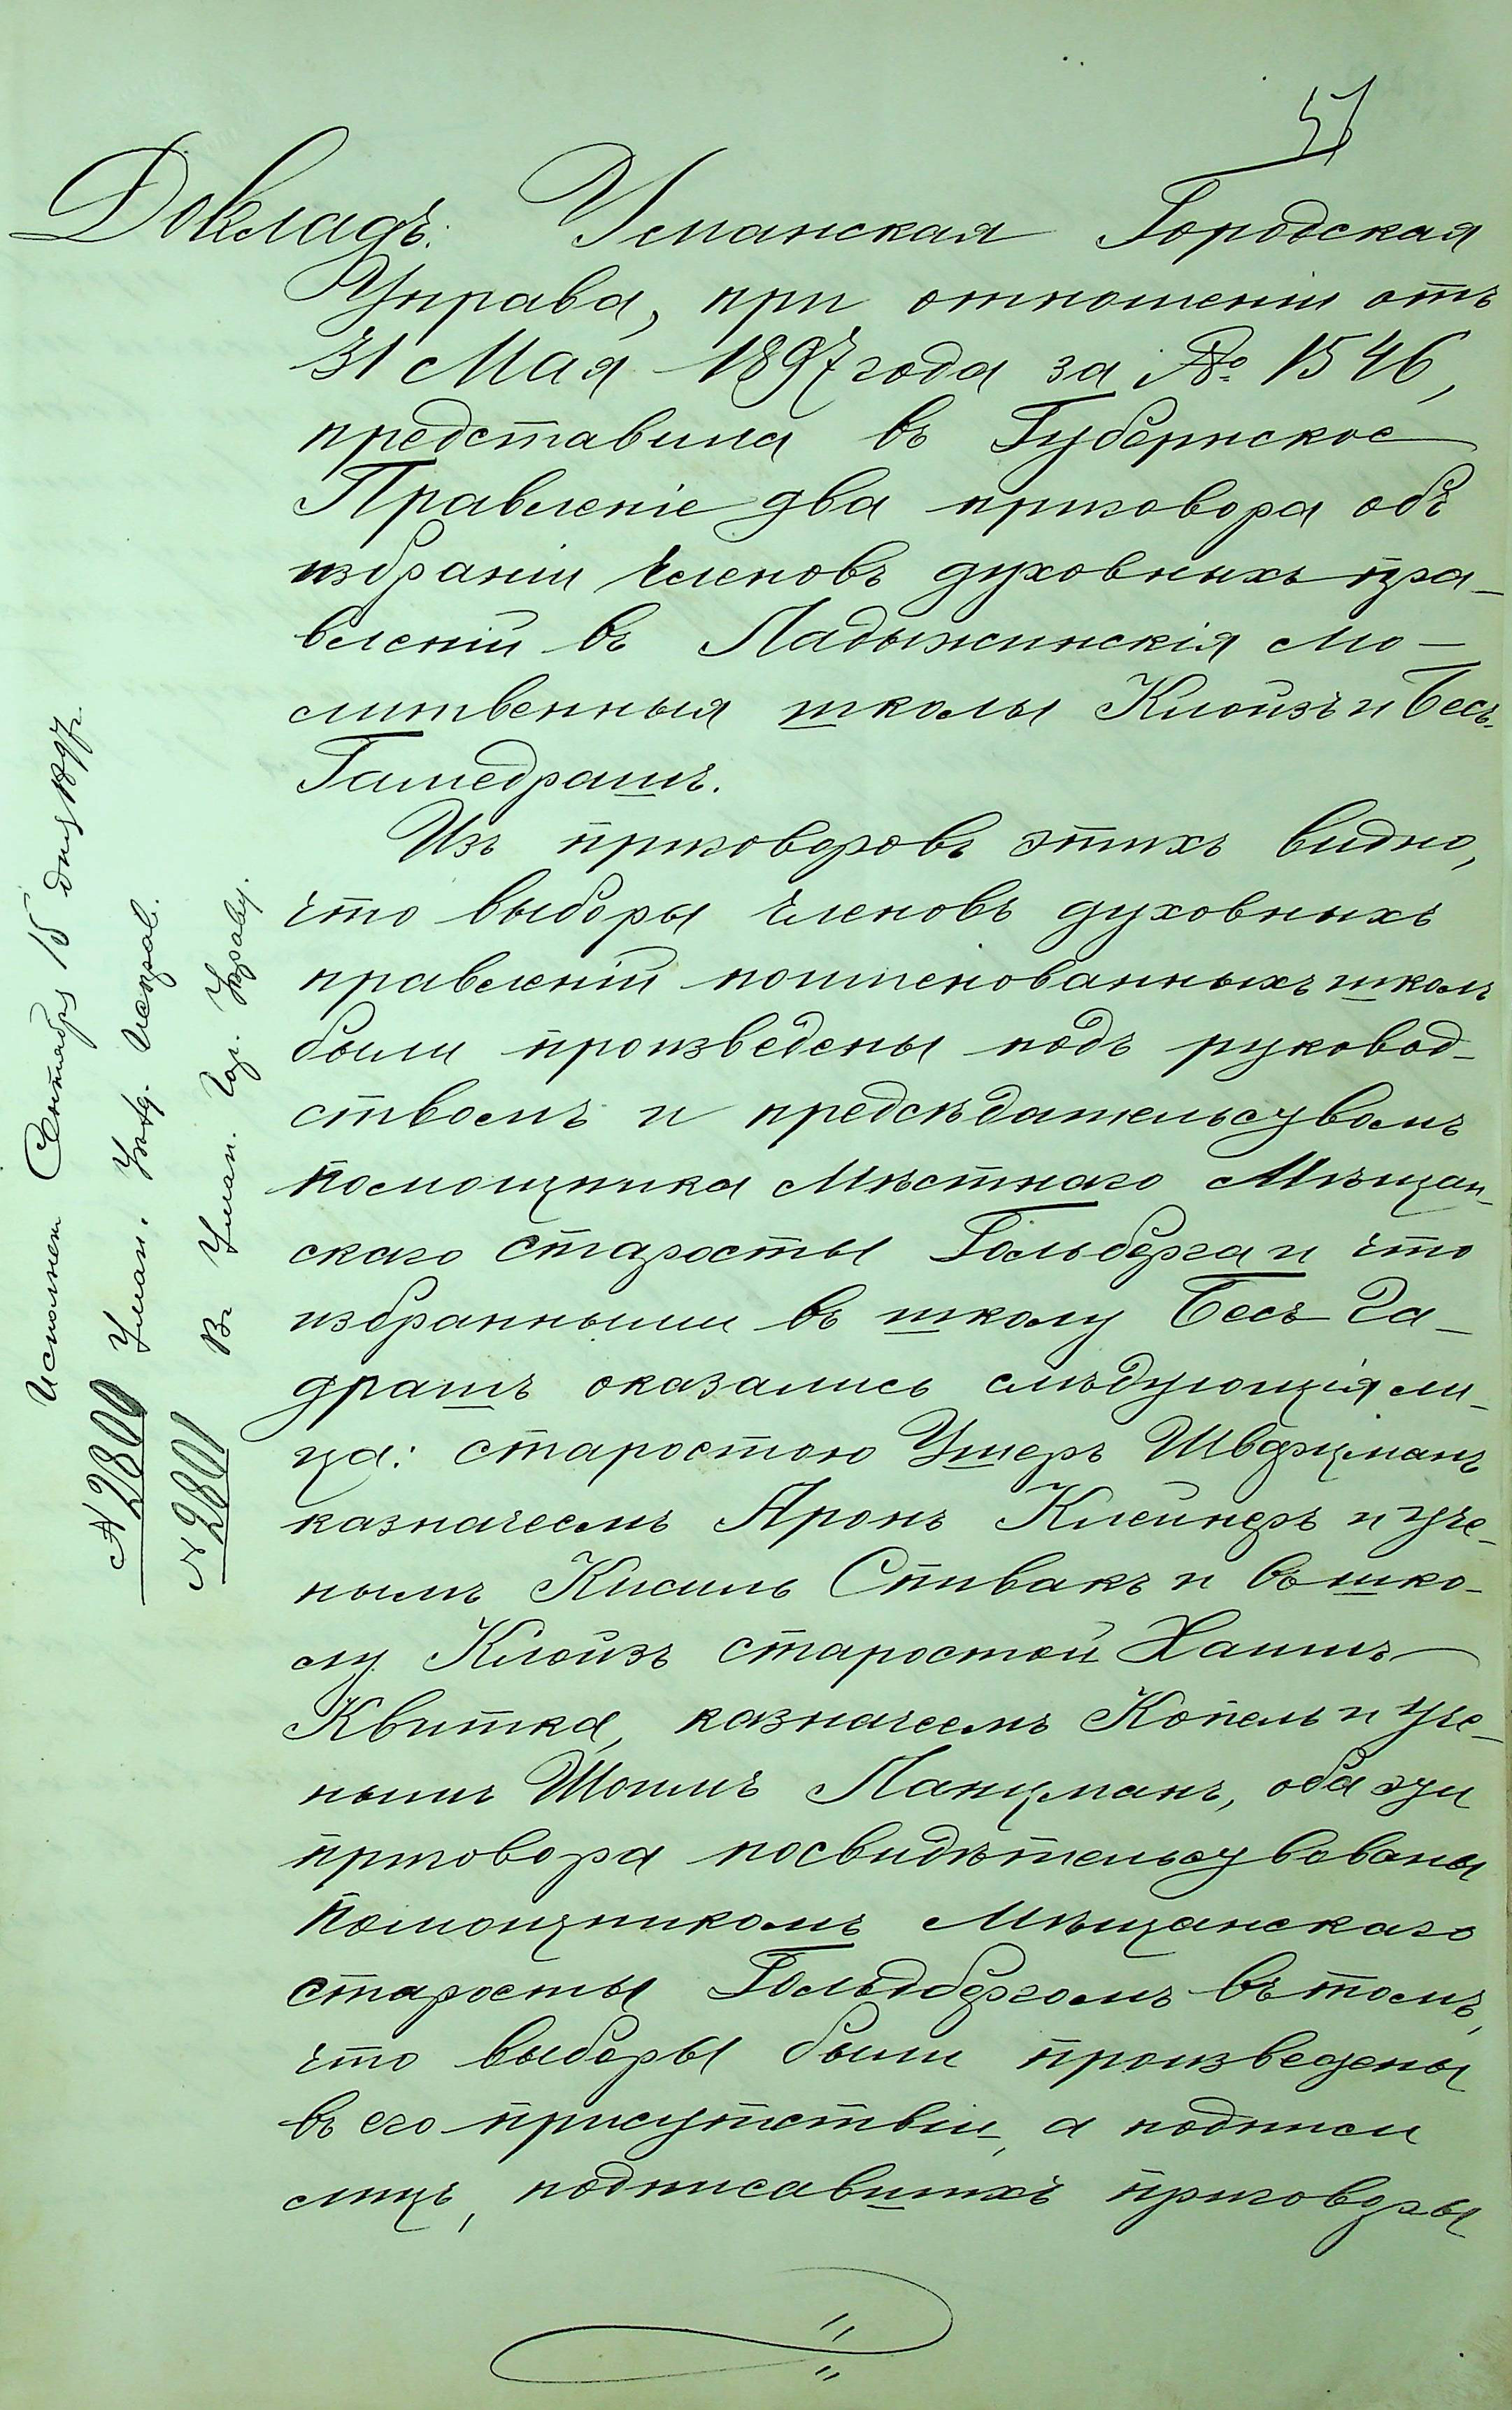 Докладъ. Уманская Городская
Управа, при отношеніи отъ
31 Мая 1897 года за № 1546,
представила въ Губернское
Правленіе два приговора объ
избраніи членовъ духовныхъ пра-
вленій въ Ладыжинскія мо-
литвенныя школы Клойзъ и Бесъ-
Гамедрашъ.
Изъ приговоровъ этихъ видно,
что выборы членовъ духовныхъ
правленій поименованныхъ школъ
были произведены подъ руковод-
ствомъ и предсѣдательствомъ
помощника Мѣстнаго Мѣщан-
скаго старосты Гольберга и что
избранными въ школу Бесъ-Га-
драшъ оказались слѣдующія ли-
ца: старостою Ушеръ Швдрцманъ
казначеемъ Аронъ Клейнеръ и уче-
нымъ Кисиль Спивакъ и въ шко-
лу Клойзъ старостой Хаимъ
Квитка, казначеемъ Копель и уче-
нымъ Шоимъ Ланцманъ, оба эти
приговора посвидѣтельствованы
помощникомъ Мѣщанскаго
старосты Гольдбергомъ въ томъ,
что выборы были произведены
въ его присутствіи, а подписи
лицъ, подписавшихъ приговоры
Исполнен Сентября 15 дня 1897 г.
№ 2800 Уман. Уѣзд. Исправ.
№ 2801 Въ Уман. Гор. Управу.